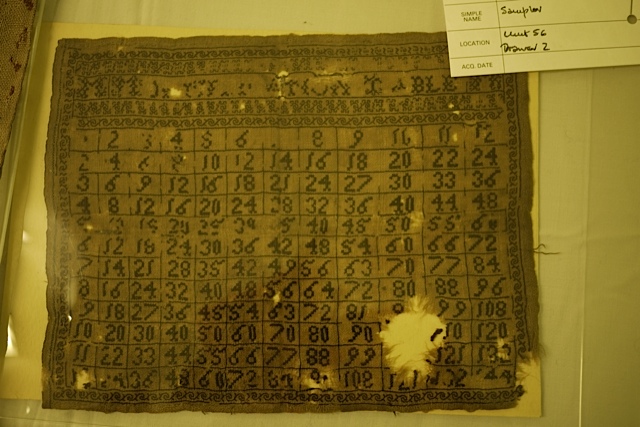 SIMPLE NAME Sampler
LOCATION Unit 56
Drawer 2
ACQ. DATE
2 3 4 5 6 8 9 10 11 12
2 4 6 8 10 12 14 16 18 20 22 24
3 6 9 12 15 18 21 24 27 30 33 36
4 8 12 16 20 24 28 32 36 40 44 48
15 20 25 30 40 45 50 55 60
6 12 18 24 30 36 42 48 54 60 66 72
7 14 21 28 35 42 49 56 63 70 77 84
8 16 24 32 40 48 56 64 72 80 88 96
9 18 27 36 45 54 63 72 81 99 108
10 20 30 40 50 60 70 80 90 10 120
11 22 33 44 55 66 77 88 99 121
36 48 60 72 84 108 144